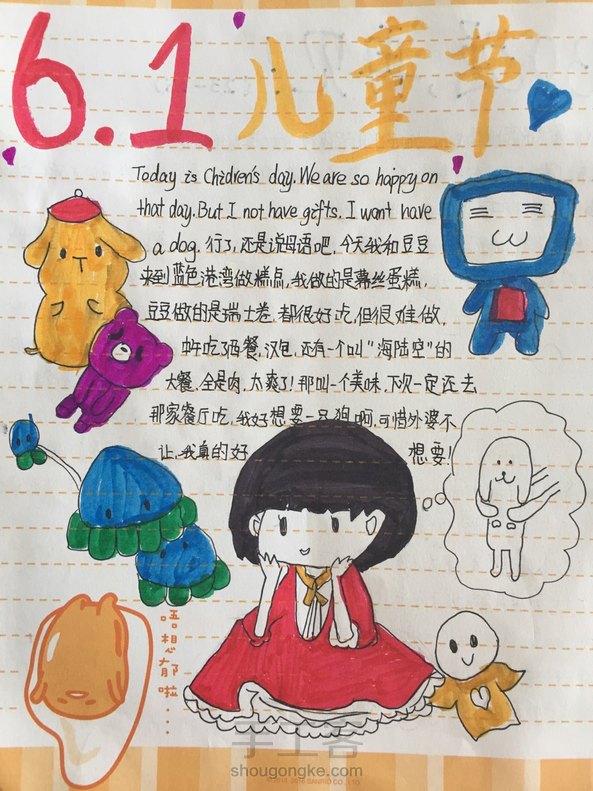 6.1儿童节
Today is Chidren's day. We are so happy on
that day. But I not have gifts. I want have
a dog. 行了,还是说母语吧,今天我和豆豆
来到蓝色港湾做糕点,我做的是幕丝蛋糕,
豆豆做的是瑞士卷.都很好吃,但很难做,
中午吃了西餐,汉包,还有一个叫"海陆空"的
大餐,全是肉,太爽了!那叫一个美味,下次一定还去
那家餐厅吃,我好想要一只狗啊,可惜外婆不
让,我真的好 想要!
唔想郁啦……
手工客
shougongke.com